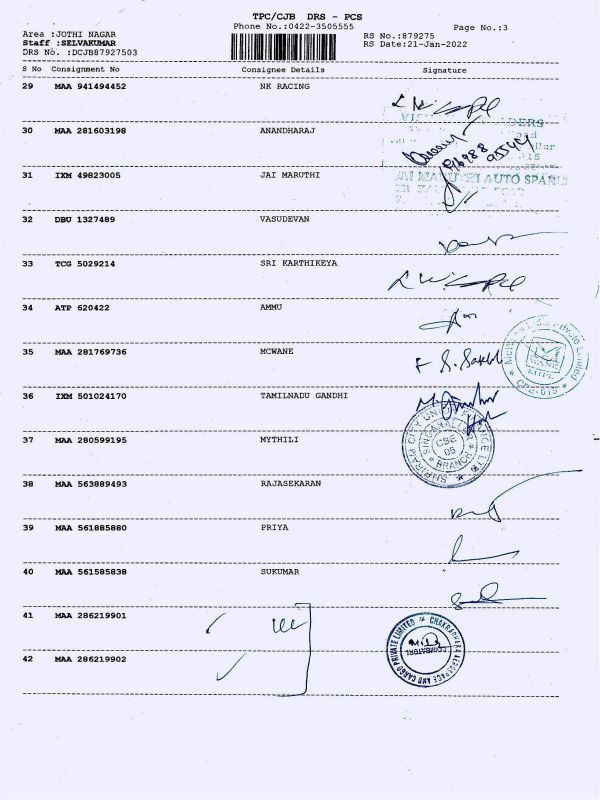 TPC/CJB DRS - PCS
Phone No.:0422-3505555
Page No.:3
Area :JOTHI NAGAR
RS No.:879275
Staff :SELVAKUMAR
RS Date:21-Jan-2022
DRS No. :DCJB87927503
S No Consignment No Consignee Details Signature
29 MAA 941494452 NK RACING
30 MAA 281603198 ANANDHARAJ
31 IXM 49823005 JAI MARUTHI
JAI MARUTHI AUTO SPARES
32 DBU 1327489 VASUDEVAN
33 TCG 5029214 SRI KARTHIKEYA
34 ATP 620422 AMMU
35 MAA 281769736 MCWANE
36 IXM 501024170 TAMILNADU GANDHI
37 MAA 280599195 MYTHILI
SHRIRAM CITY UNION FINANCE LTD
SINGANALLUR
CSE
05
BRANCH
38 MAA 563889493 RAJASEKARAN
39 MAA 561885880 PRIYA
40 MAA 561585838 SUKUMAR
41 MAA 286219901
CHAKRADHARA AEROSPACE AND CARGO PRIVATE LIMITED
42 MAA 286219902